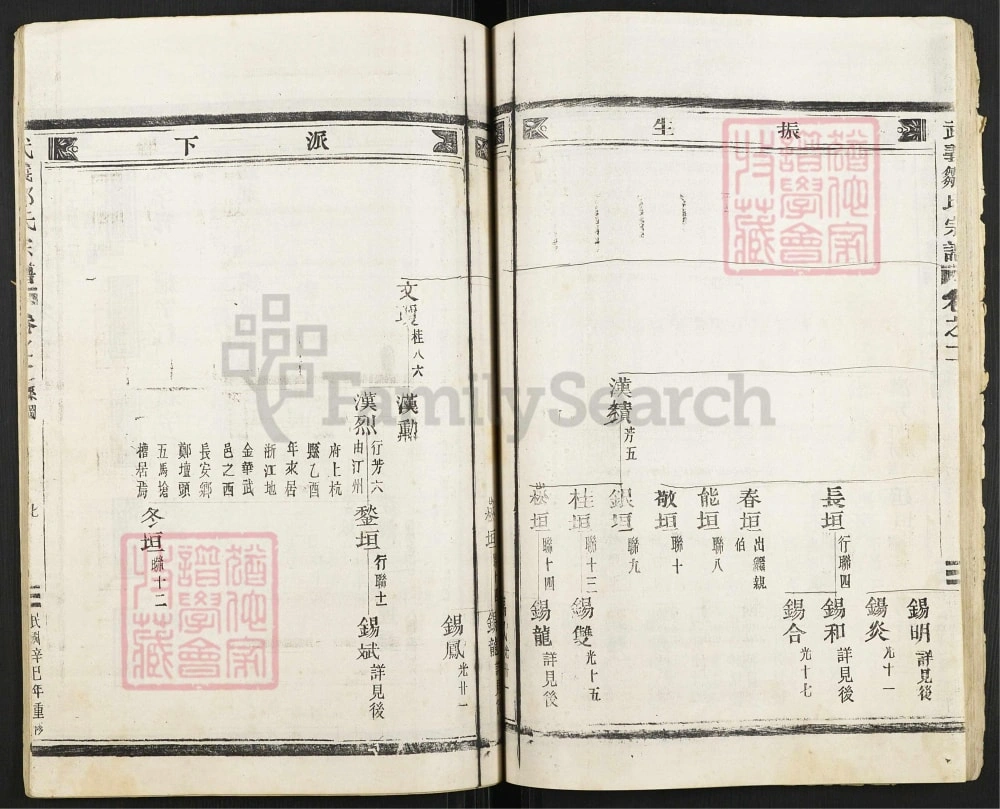 武義鄒氏宗譜 卷之二
振生
錫明 詳見後
錫炎 光十一
長垣 行聯四
錫和 詳見後
錫合 光十七
春垣 出繼親伯
能垣 聯八
敬垣 聯十
漢績 芳五
銀垣 聯九
桂垣 聯十三
錫雙 光十五
崧垣 聯十四
錫龍 詳見後
派下
錫鳳 光廿一
文瓔 桂八六
漢勳
漢烈 行芳六
由汀州
府上杭
縣乙酉
年來居
浙江地
金華武
邑之西
長安鄉
鄭壇頭
五馬搶
槽居焉
鍪垣 行聯十一
錫斌 詳見後
冬垣 聯十二
氏宗譜
民國辛巳年重
猶他家譜學會特藏
猶他家譜學會特藏
FamilySearch